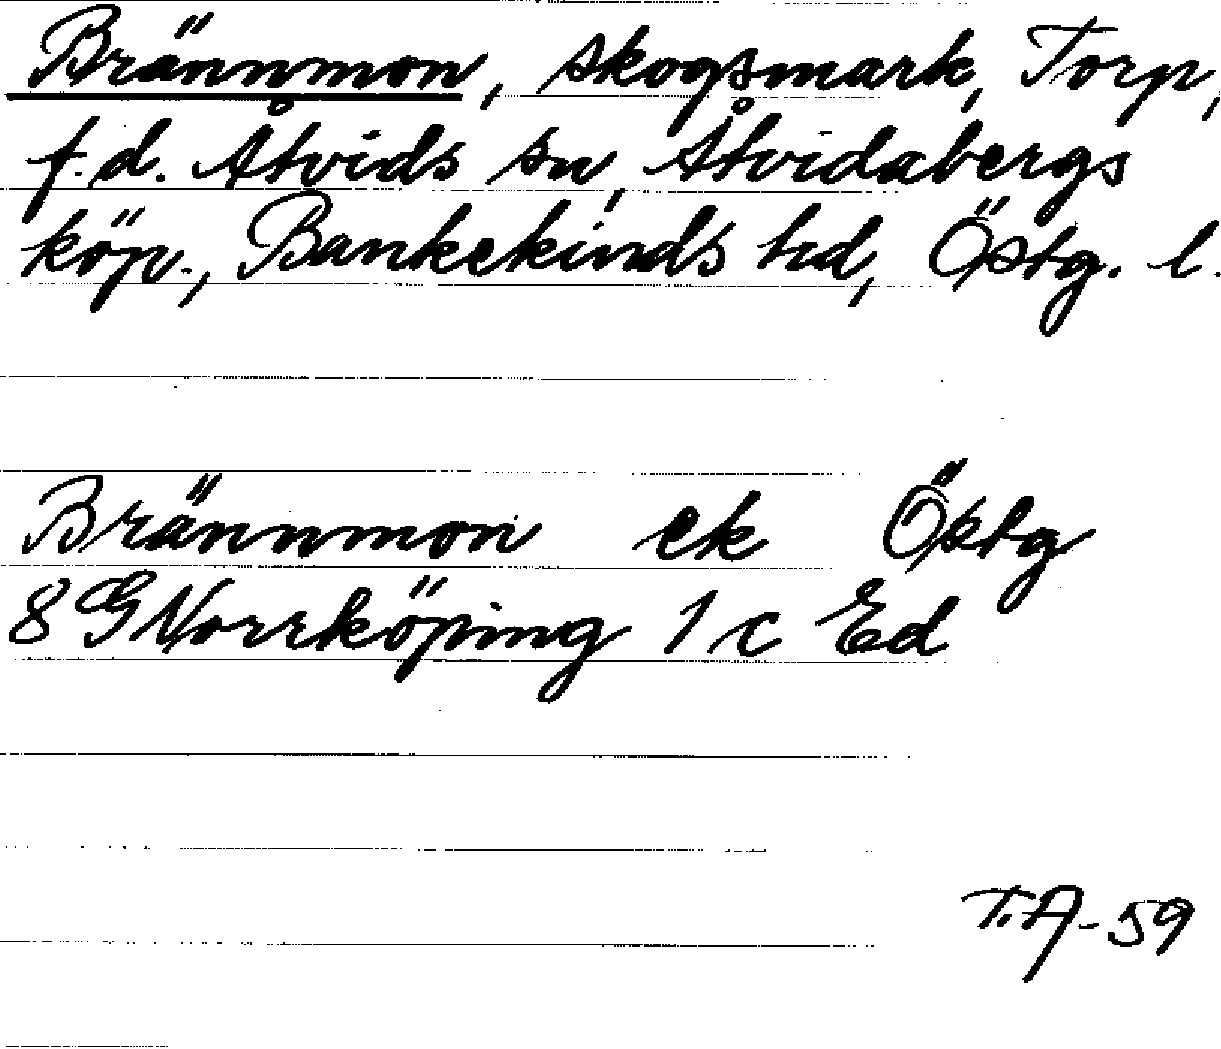 Brännmon, skogsmark, Torp,
f.d. Åtvids sn, Åtvidabergs
köp., Bankekinds hd, Östg. l.
Brännmon ek Östg
8 G Norrköping 1 c Ed
T.A-59